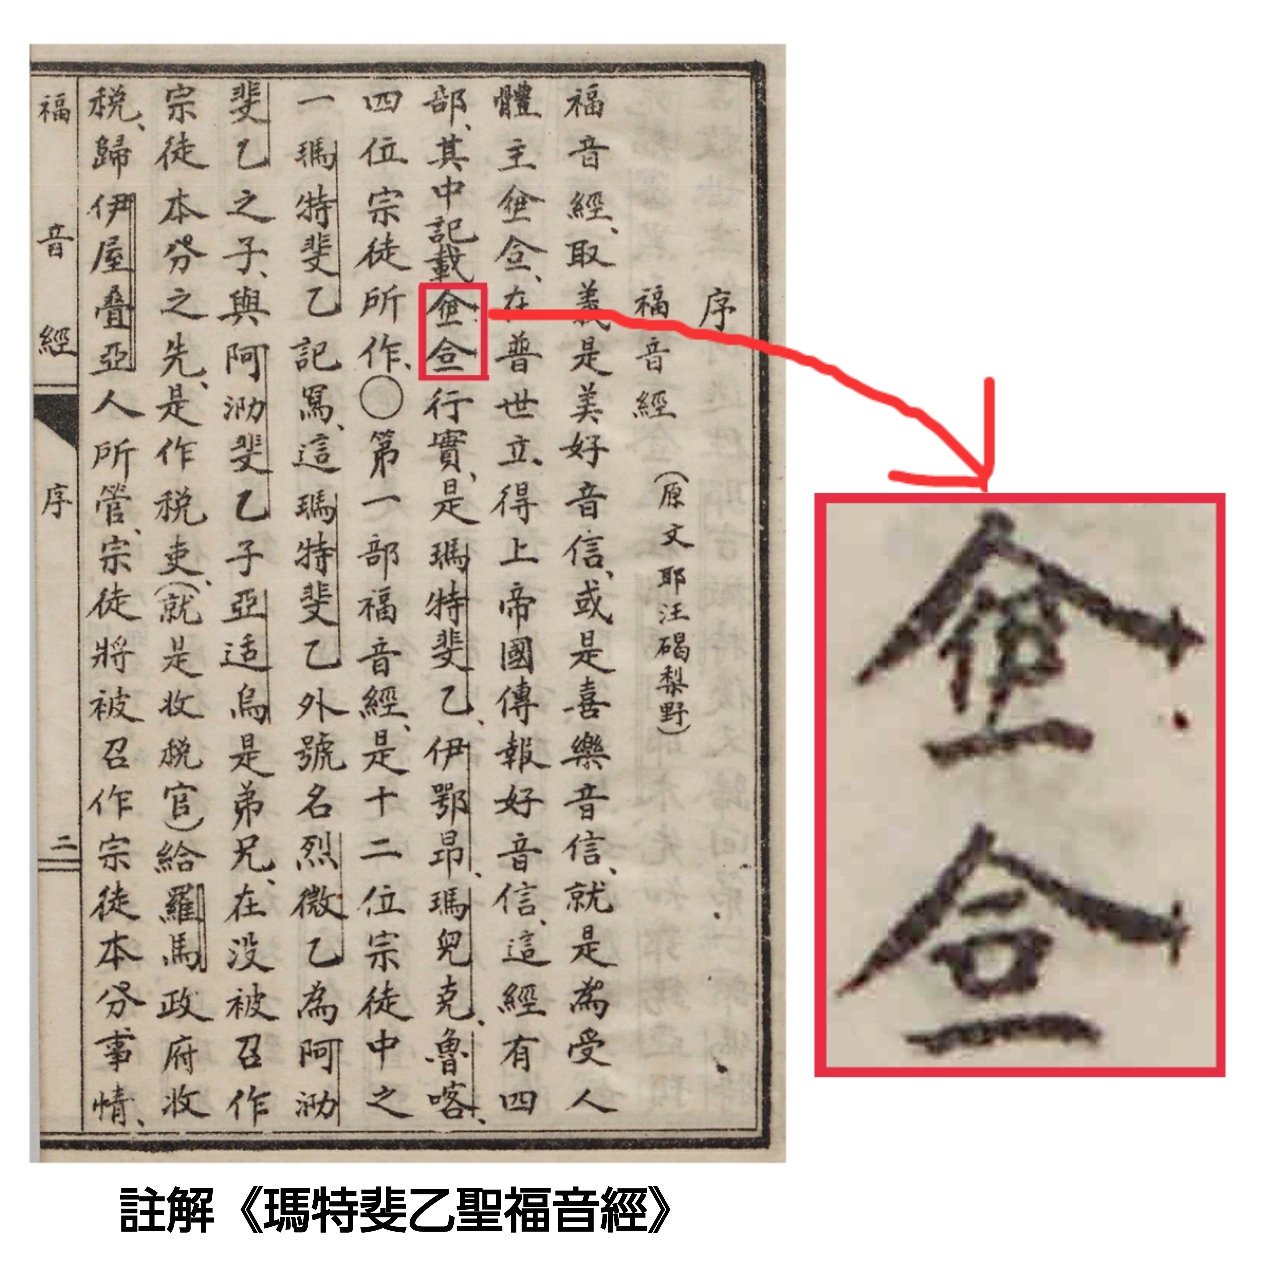 序
福音經(原文耶汪碣梨野)
福音經、取義是美好音信、或是喜樂音信、就是為受人
體主、在普世立、得上帝國傳報好音信、這經有四
部、其中記載行實、是瑪特斐乙、伊鄂昂、瑪兒克、魯喀、
四位宗徒所作、〇第一部福音經、是十二位宗徒中之
一瑪特斐乙記寫、這瑪特斐乙外號名烈微乙為阿泐
斐乙之子、與阿泐斐乙子亞适烏是弟兄、在没被召作
宗徒本分之先、是作税吏、(就是收税官)給羅馬政府收
税、歸伊屋叠亞人所管、宗徒將被召作宗徒本分事情、
福音經 序 二
註解《瑪特斐乙聖福音經》